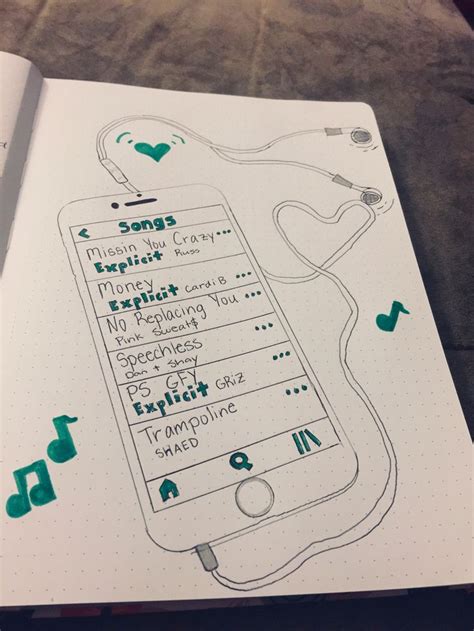 < Songs
Missin You Crazy
Explicit Russ
Money
Explicit Cardi B
No Replacing You
Pink Sweat$
Speechless
Dan + Shay
PS GFY
Explicit GRiZ
Trampoline
SHAED